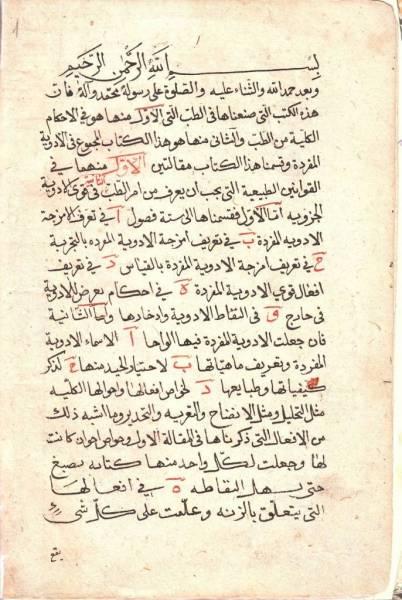 بسم الله الرحمن الرحيم
وبعد حمد الله والثناء عليه والصلوة على رسوله محمد وآله فان
هذه الكتب التي صنعناها في الطب التي الاول منها هو في الاحكام
الكلية من الطب والثاني منها هو هذا الكتاب المجموع في الادوية
المفردة وقسمنا هذا الكتاب مقالتين الاولى منهما في
القوانين الطبيعية التي يجب ان يعرف من امر الطب في قوى الادوية
الثانية
الجزويه اما الاول فقسمناها الى ستة فصول ا في تعرف امزجة
الادويه المفردة ب في تعريف امزجة الادوية المفرده بالتجربة
ج في تعريف امزجة الادوية المفردة بالقياس د في تعريف
افعال قوي الادوية المفردة ه في احكام يعرض للادوية
في خارج و في التقاط الادوية وادخارها واما الثانية
فان جعلت الادوية المفردة فيها الواحا ا الاسماء الادوية
المفردة وتعريف ماهياتها ب لاختيار الجيد منها ج لذكر
كيفياتها وطبايعها د لخواص افعالها واحوالها الكليه
مثل التحليل ومثل الانضاج والتغريه والتخدير وما اشبه ذلك
من الافعال التي ذكرناها في المقالة الاولى وخواص اخوان كانت
لها وجعلت لكل واحد منها كتابه بصبغ
حتى يسهل التقاطه ه في افعالها
التي يتعلق بالزنه وعلمت على كل شى
يقع